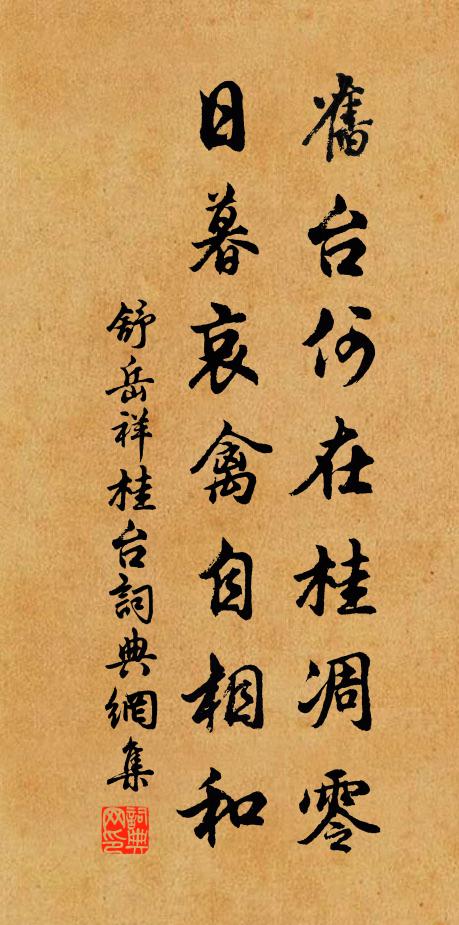 舊台何在桂凋零
日暮哀禽自相和
舒岳祥桂台詞典網集
詞典
网印